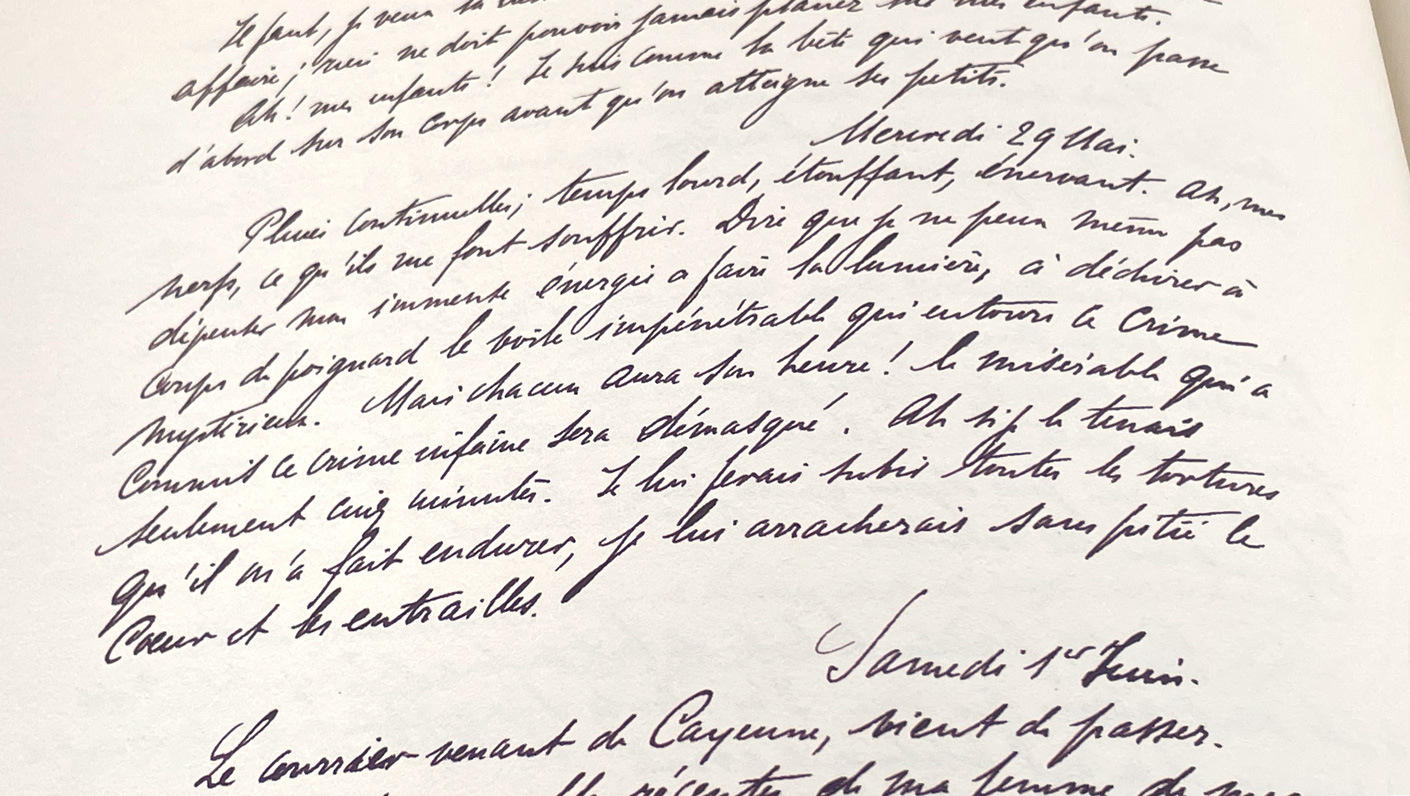 Il faut, je veux la
affaire; rien ne doit pouvoir jamais planer sur mes enfants.
Ah! mes enfants! Je suis comme la bête qui veut qu'on passe
d'abord sur son corps avant qu'on atteigne ses petits.
Mercredi 29 Mai.
Pluies continuelles; temps lourd, étouffant, énervant. Ah, mes
nerfs, ce qu'ils me font souffrir. Dire que je ne peux même pas
dépenser mon immense énergie a faire la lumière, à déchirer à
coups de poignard le voile impénétrable qui entoure ce crime
mystérieux. Mais chacun aura son heure! le misérable qui a
commis ce crime infâme sera démasqué. Ah si je le tenais
seulement cinq minutes. Je lui ferais subir toutes les tortures
qu'il m'a fait endurer, je lui arracherais sans pitié le
Cœur et les entrailles.
Samedi 1er Juin.
Le courrier venant de Cayenne, vient de passer.
récentes de ma femme de mes